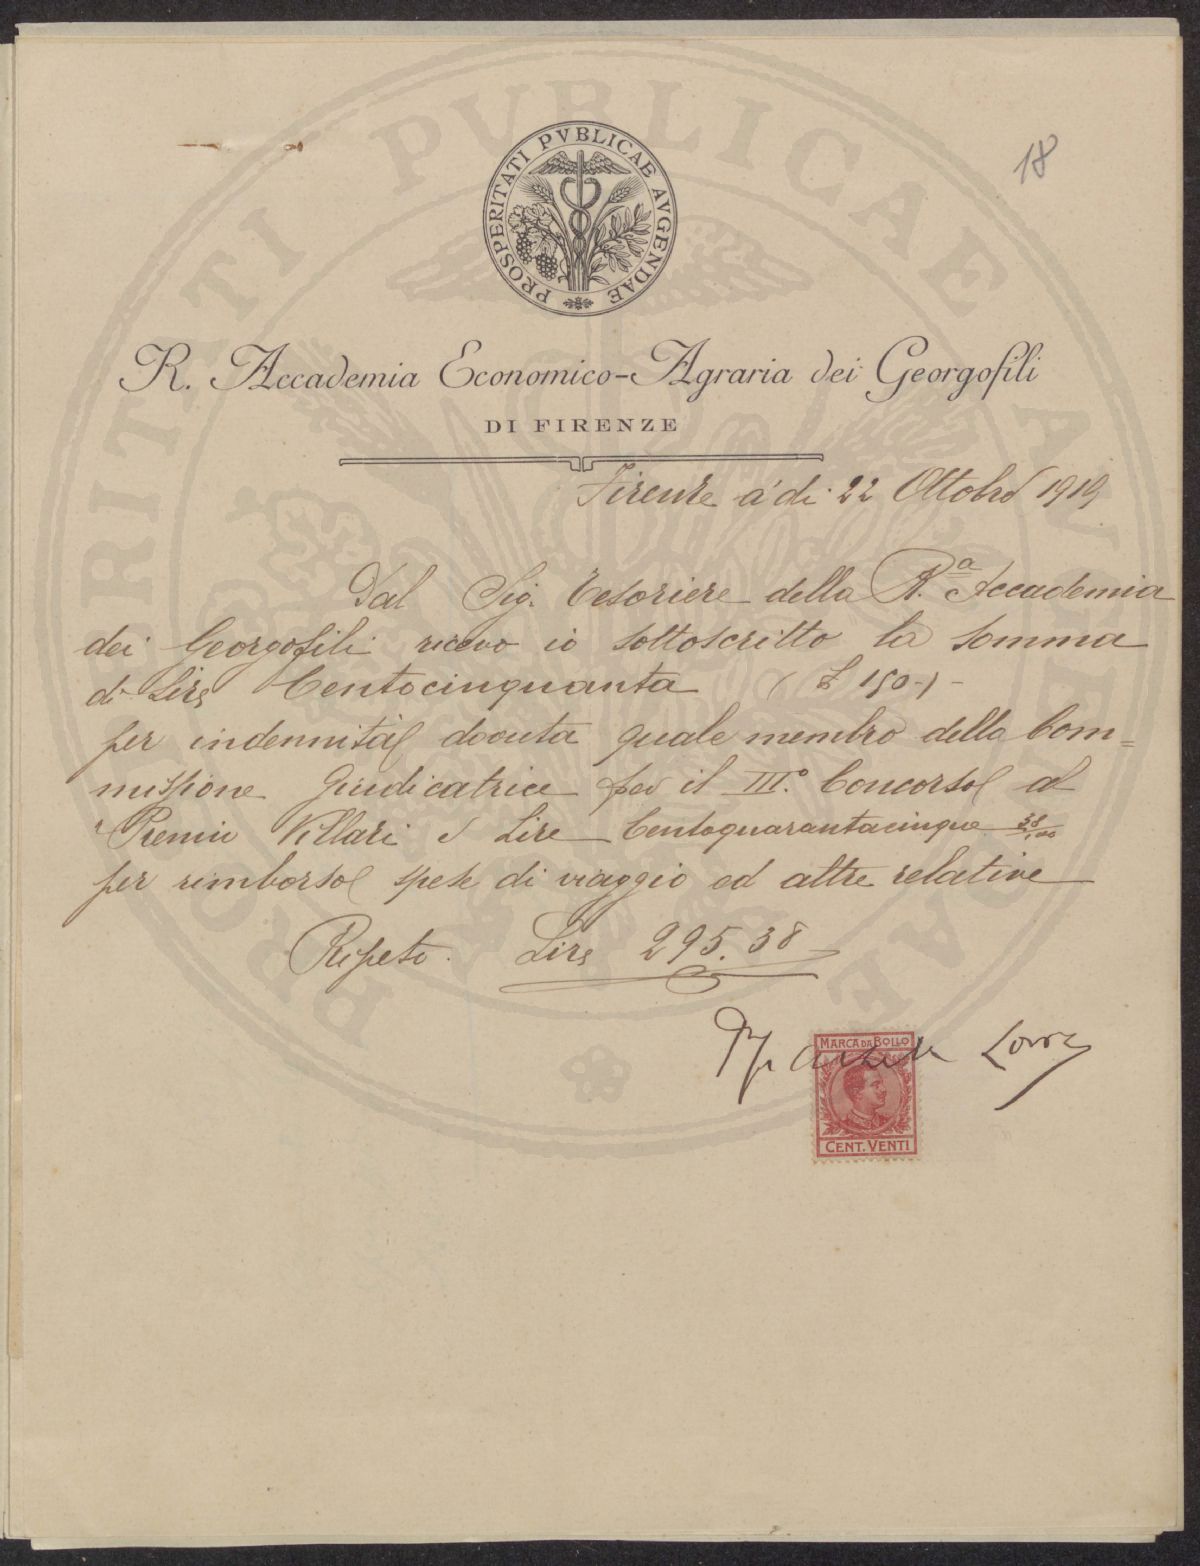 18
PROSPERITATI PVBLICAE AVGENDAE
R. Accademia Economico-Agraria dei Georgofili
DI FIRENZE
Firenze a' di 22 Ottobre 1919
Dal Sig. Tesoriere della R.a Accademia
dei Georgofili ricevo io sottoscritto la somma
di Lire Centocinquanta (£ 150-)-
per indennità dovuta quale membro della Com=
missione Giudicatrice per il III.° Concorso al
Premio Villari e Lire Centoquarantacinque 38/100
per rimborso spese di viaggio ed altre relative
Ripeto. Lire 295.38
MARCA DA BOLLO
CENT. VENTI